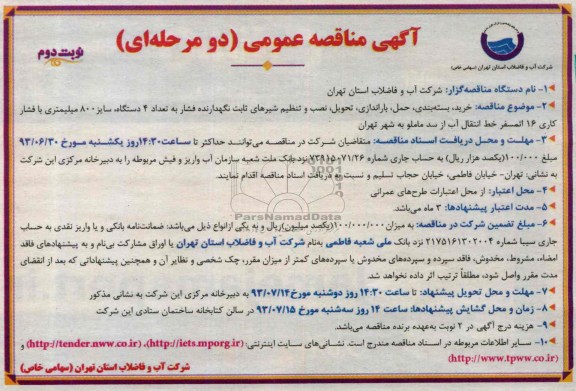 آگهی مناقصه عمومی (دو مرحله‌ای)
نوبت دوم
شرکت آب و فاضلاب استان تهران (سهامی خاص)
۱- نام دستگاه مناقصه‌گزار: شرکت آب و فاضلاب استان تهران
۲- موضوع مناقصه: خرید، بسته‌بندی، حمل، باراندازی، تحویل، نصب و تنظیم شیرهای ثابت نگهدارنده فشار به تعداد ۴ دستگاه، سایز ۸۰۰ میلیمتری با فشار
کاری ۱۶ اتمسفر خط انتقال آب از سد ماملو به شهر تهران
۳- مهلت و محل دریافت اسناد مناقصه: متقاضیان شرکت در مناقصه می‌توانند حداکثر تا ساعت ۱۴:۳۰ روز یکشنبه مورخ ۹۳/۰۶/۳۰
مبلغ ۱۰۰/۰۰۰ (یکصد هزار ریال) به حساب جاری شماره ۷۳۹۱۵۰۷۱/۲۶ نزد بانک ملت شعبه سازمان آب واریز و فیش مربوطه را به دبیرخانه مرکزی این شرکت
به نشانی: تهران- خیابان فاطمی، خیابان حجاب تسلیم و نسبت به دریافت اسناد مناقصه اقدام نمایند.
۴- محل اعتبار: از محل اعتبارات طرح‌های عمرانی
۵- مدت اعتبار پیشنهادها: ۳ ماه می‌باشد.
۶- مبلغ تضمین شرکت در مناقصه: به میزان ۱۰۰/۰۰۰/۰۰۰ (یکصد میلیون) ریال و به یکی از انواع ذیل می‌باشد: ضمانت‌نامه بانکی و یا واریز نقدی به حساب
جاری سیبا شماره ۲۱۷۵۱۶۱۳۰۲۰۰۴ نزد بانک ملی شعبه فاطمی به‌نام شرکت آب و فاضلاب استان تهران یا اوراق مشارکت بی‌نام و به پیشنهادهای فاقد
امضاء، مشروط، مخدوش، فاقد سپرده و سپرده‌های مخدوش یا سپرده‌های کمتر از میزان مقرر، چک شخصی و نظایر آن و همچنین پیشنهاداتی که بعد از انقضای
مدت مقرر واصل شود، مطلقاً ترتیب اثر داده نخواهد شد.
۷- مهلت و محل تحویل پیشنهاد: تا ساعت ۱۴:۳۰ روز دوشنبه مورخ ۹۳/۰۷/۱۴ به دبیرخانه مرکزی این شرکت به نشانی مذکور
۸- زمان و محل گشایش پیشنهادها: ساعت ۱۴ روز سه‌شنبه مورخ ۹۳/۰۷/۱۵ در سالن کتابخانه ساختمان ستادی این شرکت
۹- هزینه درج آگهی در ۲ نوبت به‌عهده برنده مناقصه می‌باشد.
۱۰- سایر اطلاعات مربوطه در اسناد مناقصه مندرج است. نشانی‌های سایت اینترنتی: (http://iets.mporg.ir)، (http://tender.nww.co.ir) و
(http://www.tpww.co.ir)
شرکت آب و فاضلاب استان تهران (سهامی خاص)
ParsNamadData